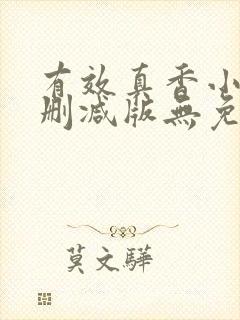 有效真香小
删减版無免
莫文驊